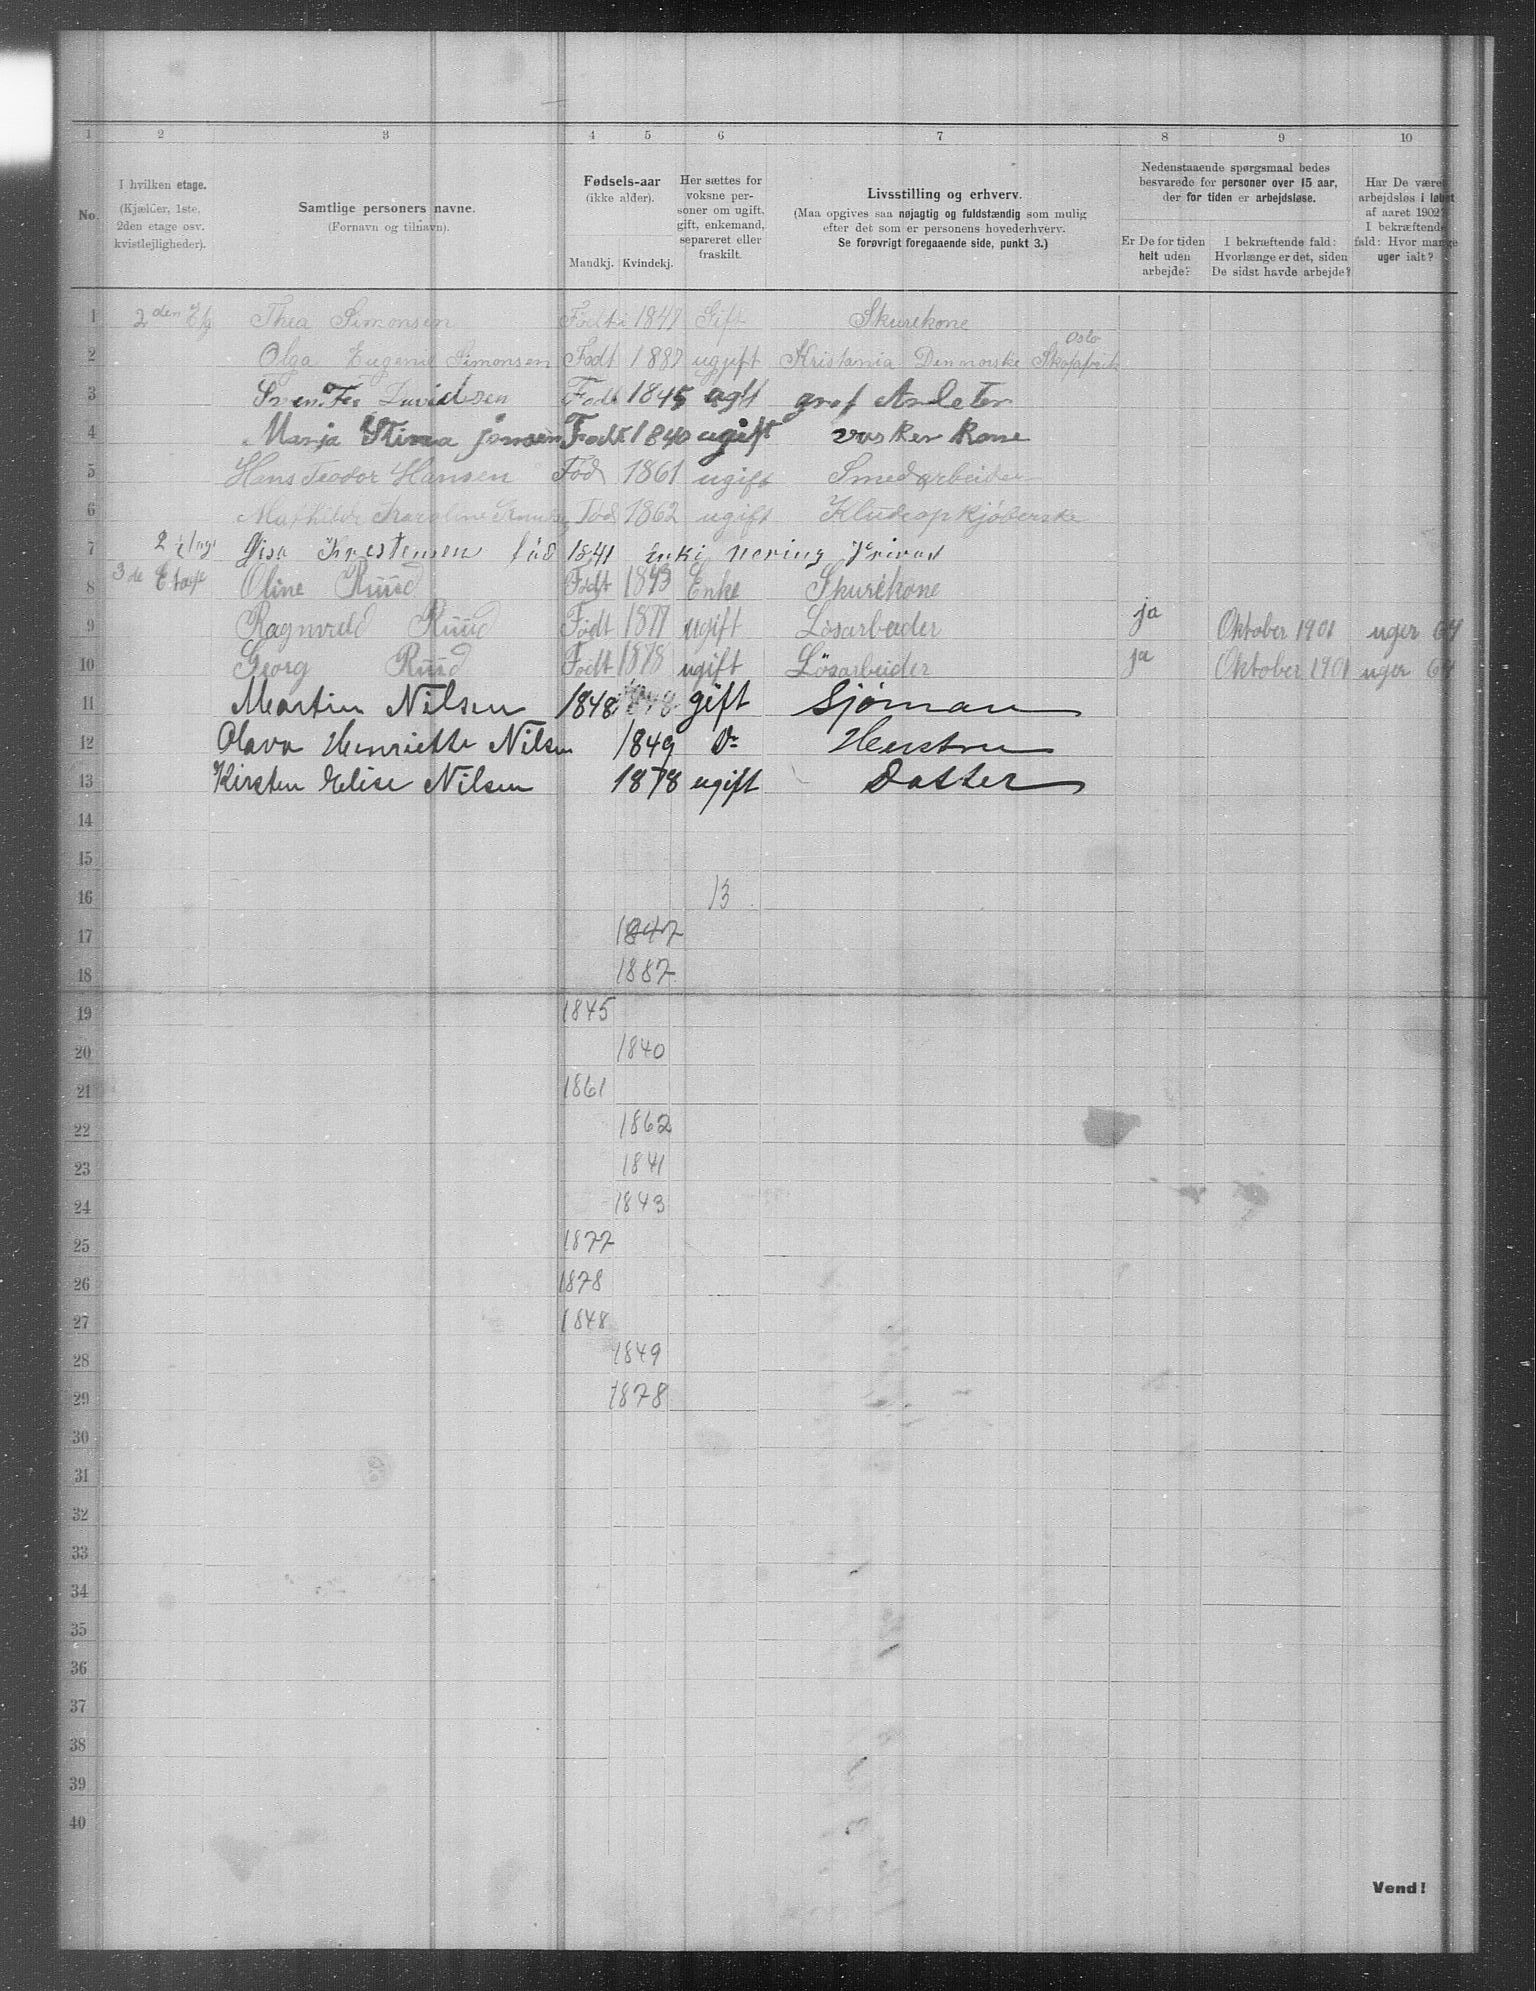 1 2 3 4 5 6 7 8 9 10
No.
I hvilken etage.
(Kjælder, 1ste,
2den etage osv.
kvistlejligheder).
Samtlige personers navne.
(Fornavn og tilnavn).
Fødsels-aar
(ikke alder).
Mandkj. Kvindekj.
Her sættes for
voksne per-
soner om ugift,
gift, enkemand,
separeret eller
fraskilt.
Livsstilling og erhverv.
(Maa opgives saa nøjagtig og fuldstændig som mulig
efter det som er personens hovederhverv.
Se forøvrigt foregaaende side, punkt 3.)
Nedenstaaende spørgsmaal bedes
besvarede for personer over 15 aar,
der for tiden er arbejdsløse.
Er De for tiden
helt uden
arbejde?
I bekræftende fald:
Hvorlænge er det, siden
De sidst havde arbejde?
Har De været
arbejdsløs i løbet
af aaret 1902?
I bekræftende
fald: Hvor mange
uger ialt?
1 2den Etg Thea Simonsen Født 1847 Gift Skurekone
2 Olga Eugenie Simonsen Født 1887 ugift Kristania Den norske Skofabrik Oslo
3 Davidsen Født 1845 ugift Arbeter
4 Marja Stina Jonsen Født 1840 ugift vasker kone
5 Hans Teodor Hansen Fød 1861 ugift Smedarbeider
6 Mathilde Karoline Fød 1862 ugift Kludeopkjøberske
7 2 Lisa Krestensen fød 1841 Enke nering Privat
8 3de Etage Oline Ruud Født 1843 Enke Skurekone
9 Ragnvald Ruud Født 1877 ugift Løsarbeider ja Oktober 1901 uger 64
10 Georg Ruud Født 1878 ugift Løsarbeider ja Oktober 1901 uger 64
11 Martin Nilsen 1848 1848 gift Sjøman
12 Olava Henriette Nilsen 1849 Do Hustru
13 Kirsten Elise Nilsen 1878 ugift Datter
14
15
16 13
17 1847
18 1887
19 1845
20 1840
21 1861
22 1862
23 1841
24 1843
25 1877
26 1878
27 1848
28 1849
29 1878
30
31
32
33
34
35
36
37
38
39
40
Vend!